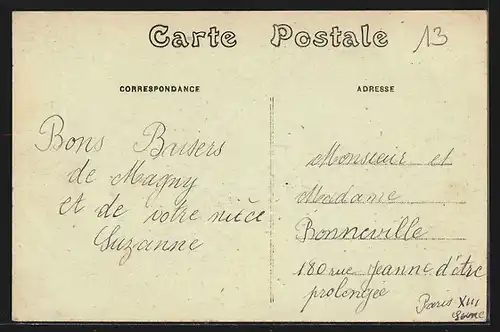 Carte Postale
13
CORRESPONDANCE
ADRESSE
Bons Baisers
de Magny
et de votre nièce
Suzanne
Monsieur et
Madame
Bonneville
180 rue Jeanne d'être
prolongée
Paris XIII
Seine